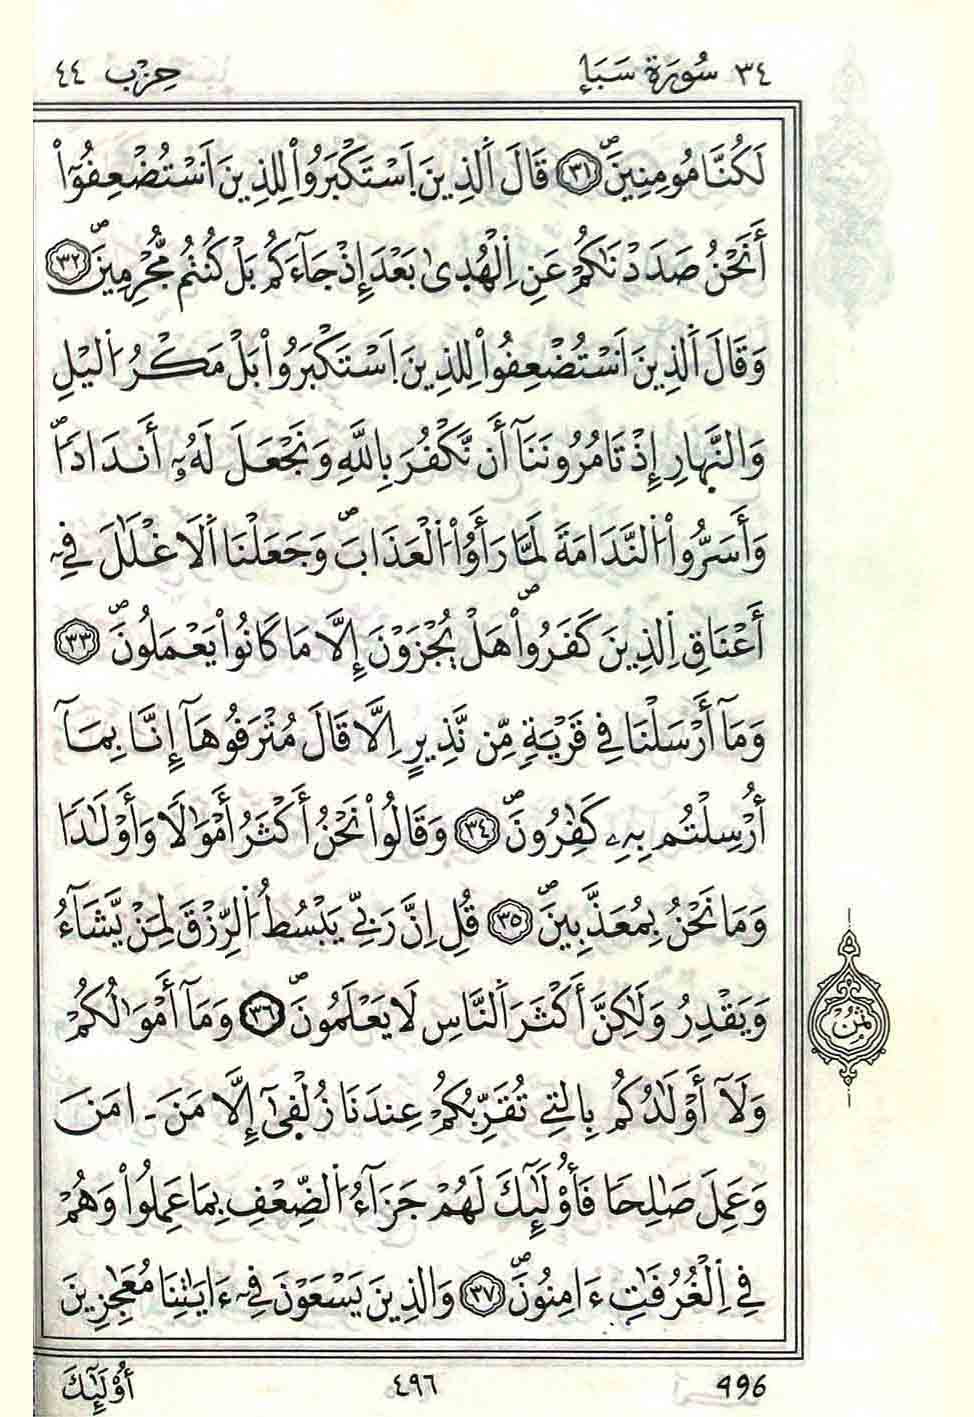 ٣٤ سُورَةُ سَبَإٍ حِزْب ٤٤
لَكُنَّا مُومِنِينَۖ ٣١ قَالَ اَلذِينَ اَسْتَكْبَرُواْ لِلذِينَ اَسْتُضْعِفُوٓاْ
أَنَحْنُ صَدَدْنَٰكُمْ عَنِ اِلْهُد۪ىٰ بَعْدَ إِذْ جَآءَكُم بَلْ كُنتُم مُّجْرِمِينَۖ ٣٢
وَقَالَ اَلذِينَ اَسْتُضْعِفُواْ لِلذِينَ اَسْتَكْبَرُواْ بَلْ مَكْرُ اُليْلِ
وَالنَّه۪ارِ إِذْ تَامُرُونَنَآ أَن نَّكْفُرَ بِاللَّهِ وَنَجْعَلَ لَهُۥٓ أَندَادَاۖ
وَأَسَرُّواْ اُلنَّدَامَةَ لَمَّا رَأَوُاْ اُلْعَذَابَۖ وَجَعَلْنَا اَلَاغْلَٰلَ فِےٓ
أَعْنَاقِ اِلذِينَ كَفَرُواْۖ هَلْ يُجْزَوْنَ إِلَّا مَا كَانُواْ يَعْمَلُونَۖ ٣٣
وَمَآ أَرْسَلْنَا فِے قَرْيَةٖ مِّن نَّذِيرٍ اِلَّا قَالَ مُتْرَفُوهَآ إِنَّا بِمَآ
أُرْسِلْتُم بِهِۦ كَٰفِرُونَۖ ٣٤ وَقَالُواْ نَحْنُ أَكْثَرُ أَمْوَٰلًا وَأَوْلَٰدًا
وَمَا نَحْنُ بِمُعَذَّبِينَۖ ٣٥ قُلِ اِنَّ رَبِّے يَبْسُطُ اُلرِّزْقَ لِمَنْ يَّشَآءُ
وَيَقْدِرُ وَلَٰكِنَّ أَكْثَرَ اَلنَّاسِ لَا يَعْلَمُونَۖ ٣٦ وَمَآ أَمْوَٰلُكُمْ
ثمن
وَلَآ أَوْلَٰدُكُم بِالتِے تُقَرِّبُكُمْ عِندَنَا زُلْف۪ىٰٓ إِلَّا مَنَ ـ امَنَ
وَعَمِلَ صَٰلِحًا فَأُوْلَٰٓئِكَ لَهُمْ جَزَآءُ اُلضِّعْفِ بِمَا عَمِلُواْ وَهُمْ
فِے اِلْغُرُفَٰتِ ءَامِنُونَۖ ٣٧ وَالذِينَ يَسْعَوْنَ فِےٓ ءَايَٰتِنَا مُعَٰجِزِينَ
496 ٤٩٦ أُوْلَٰٓئِكَ